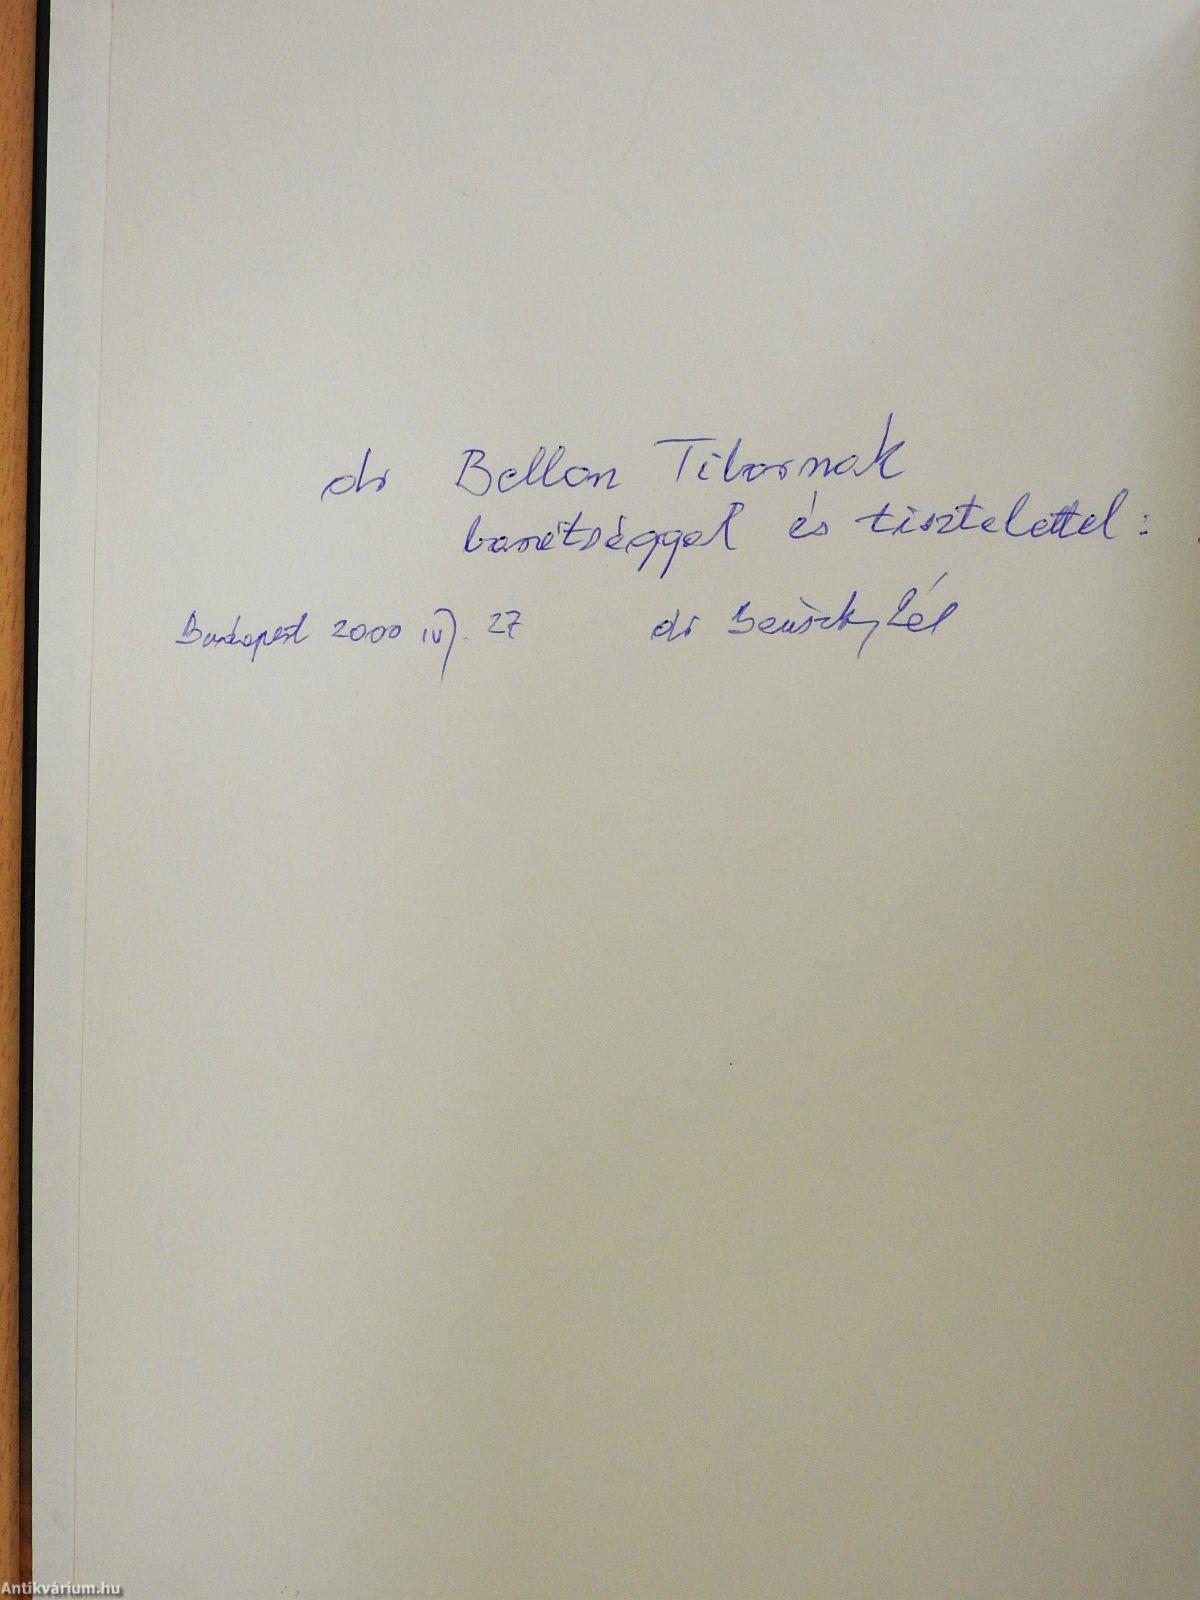 dr Bellon Tibornak
barátsággal és tisztelettel:
Budapest 2000 IV. 27 dr
Antikvárium.hu